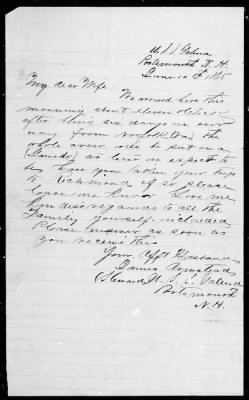 U.S.S. Galena
Portsmouth N.H.
June 10th 1865
My dear Wife
We arrived here this
morning about eleven Oclock
after thirty six days on our
way from Norfolk Va the
whole crew will be put on a
as soon as
have you taken your trip
to Richmond if so please
leave me know Give me
kind regards to all the
Family yourself included
Please answer as soon as
you receive this
Your Afft Husband
Armstead
(Steward U.S.S. Galena
Portsmouth
N.H.